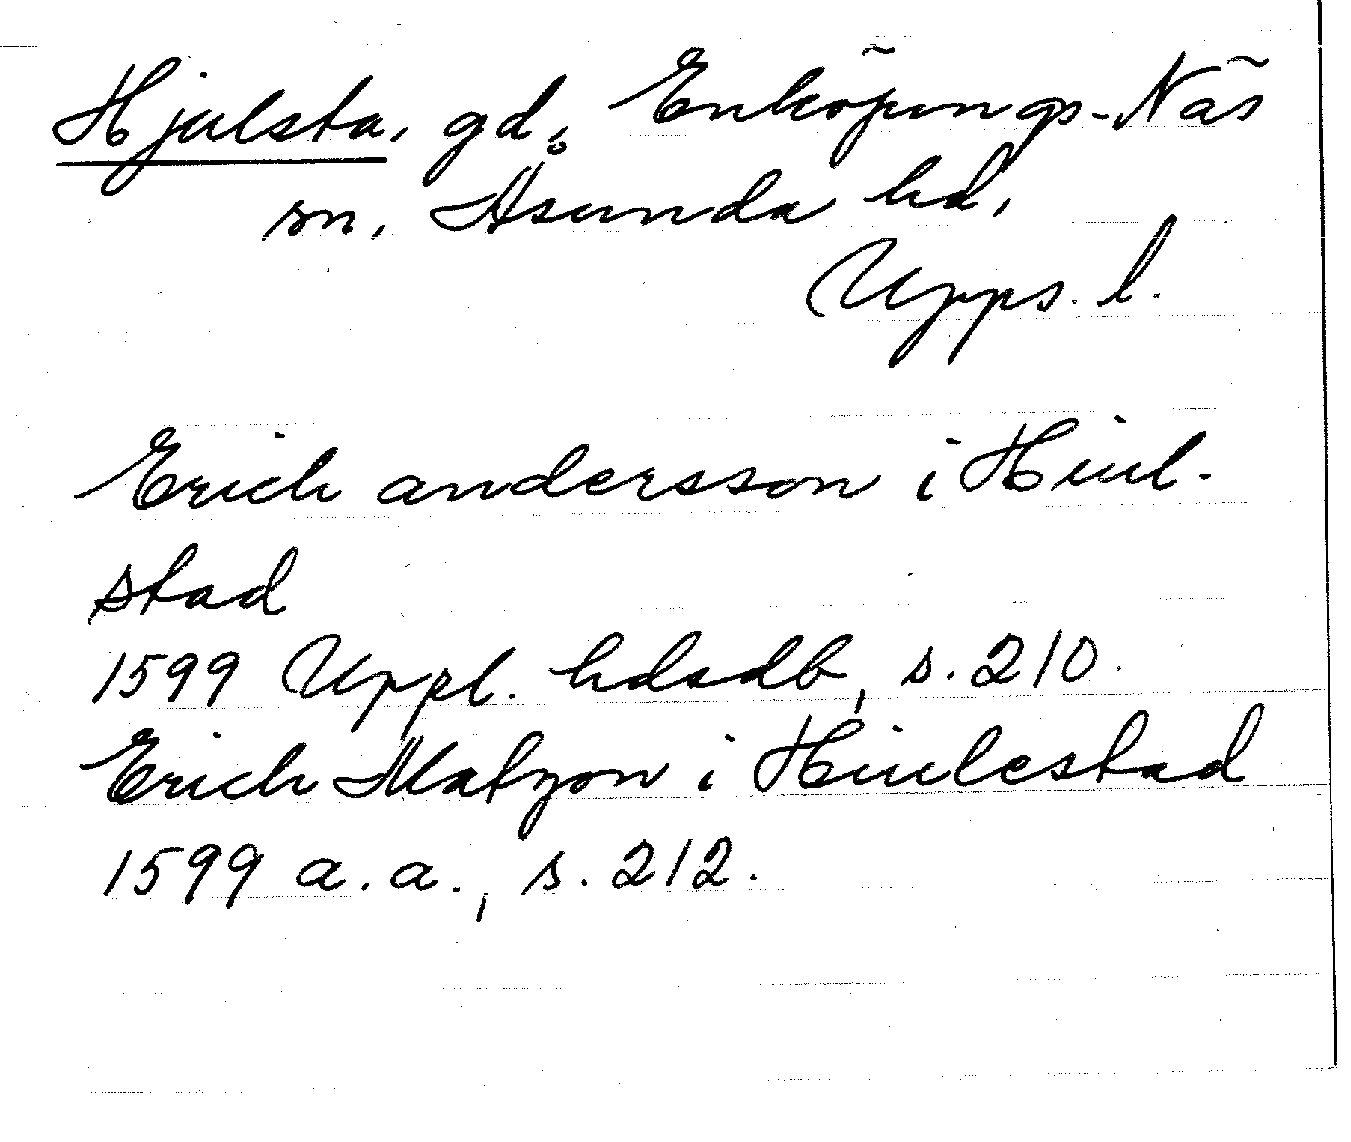 Hjulsta, gd, Enköpings-Näs
sn, Åsunda hd,
Upps. l.
Erich andersson i Hiul-
stad
1599 Uppl. hdsdb, s. 210.
Erich Matzon i Hiulestad
1599 a.a., s. 212.